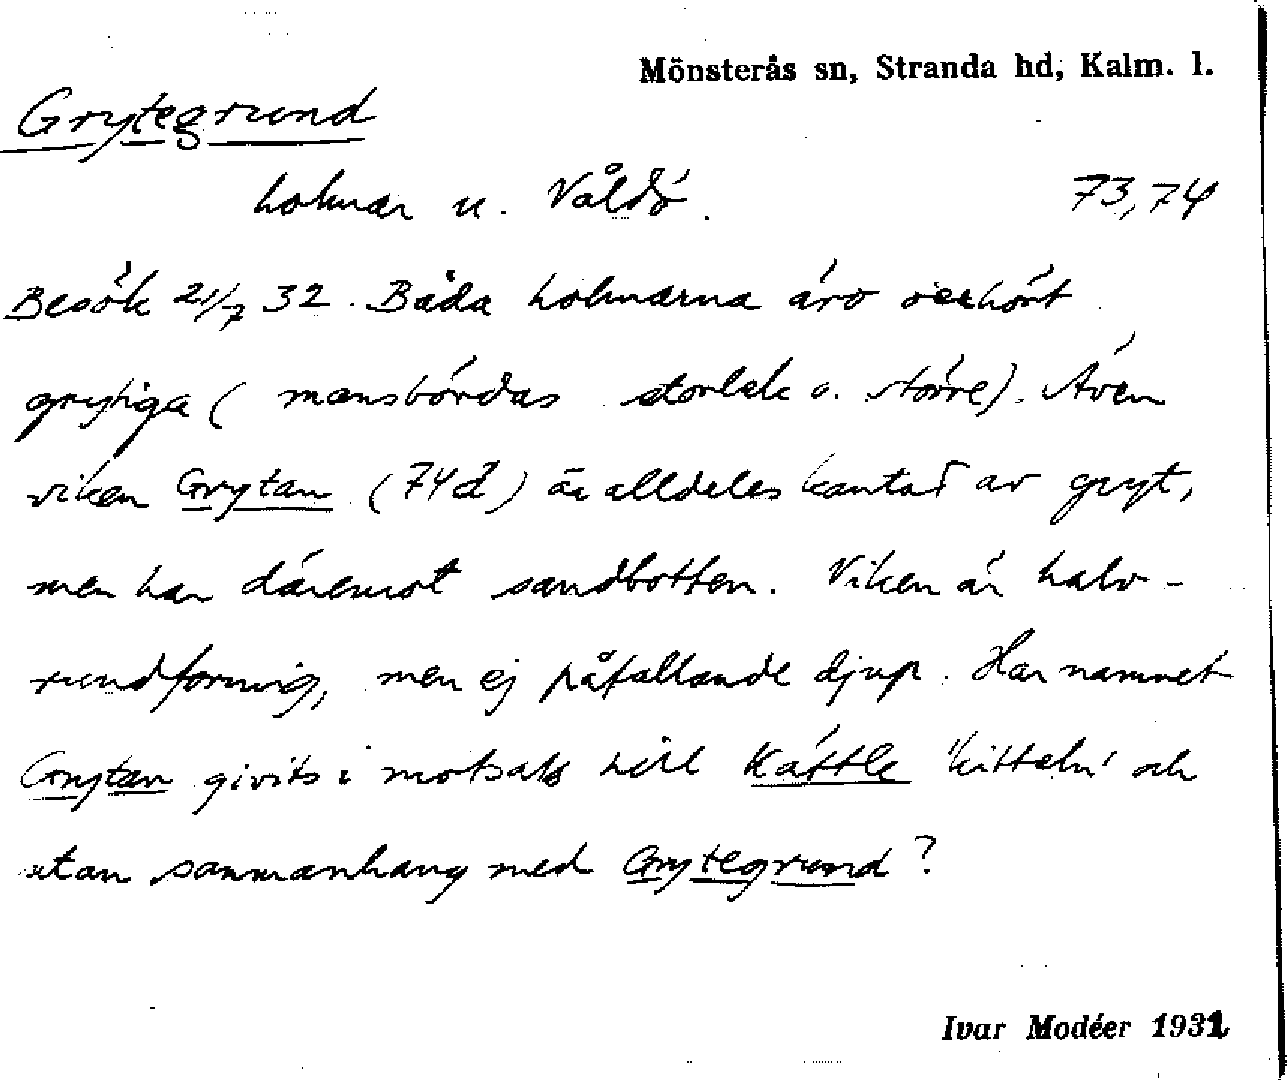 Mönsterås sn, Stranda hd, Kalm. l.
Grytegrund
holmar u. Våldö. 73,74
Besök 21/7 32. Båda holmarna äro oerhört
grytiga (mansbördas storlek o. större). Även
viken Grytan (74d) är alldeles kantad av gryt,
men har däremot sandbotten. Viken är halv-
rundformig, men ej påfallande djup. Har namnet
Grytan givits i motsats till Kättle 'kitteln' och
utan sammanhang med Grytegrund?
Ivar Modéer 1931